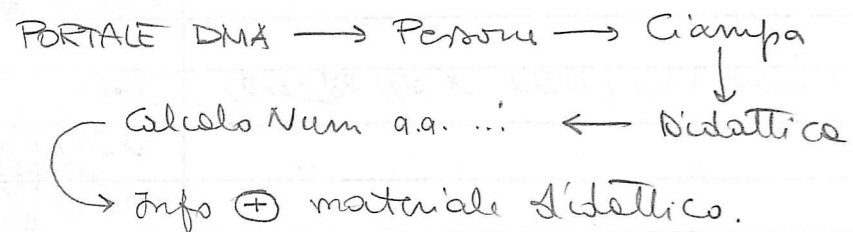 PORTALE DMA → Persone → Ciampa
↓
Calcolo Num a.a. ... ← Didattica
→ Info ⊕ materiale didattico.